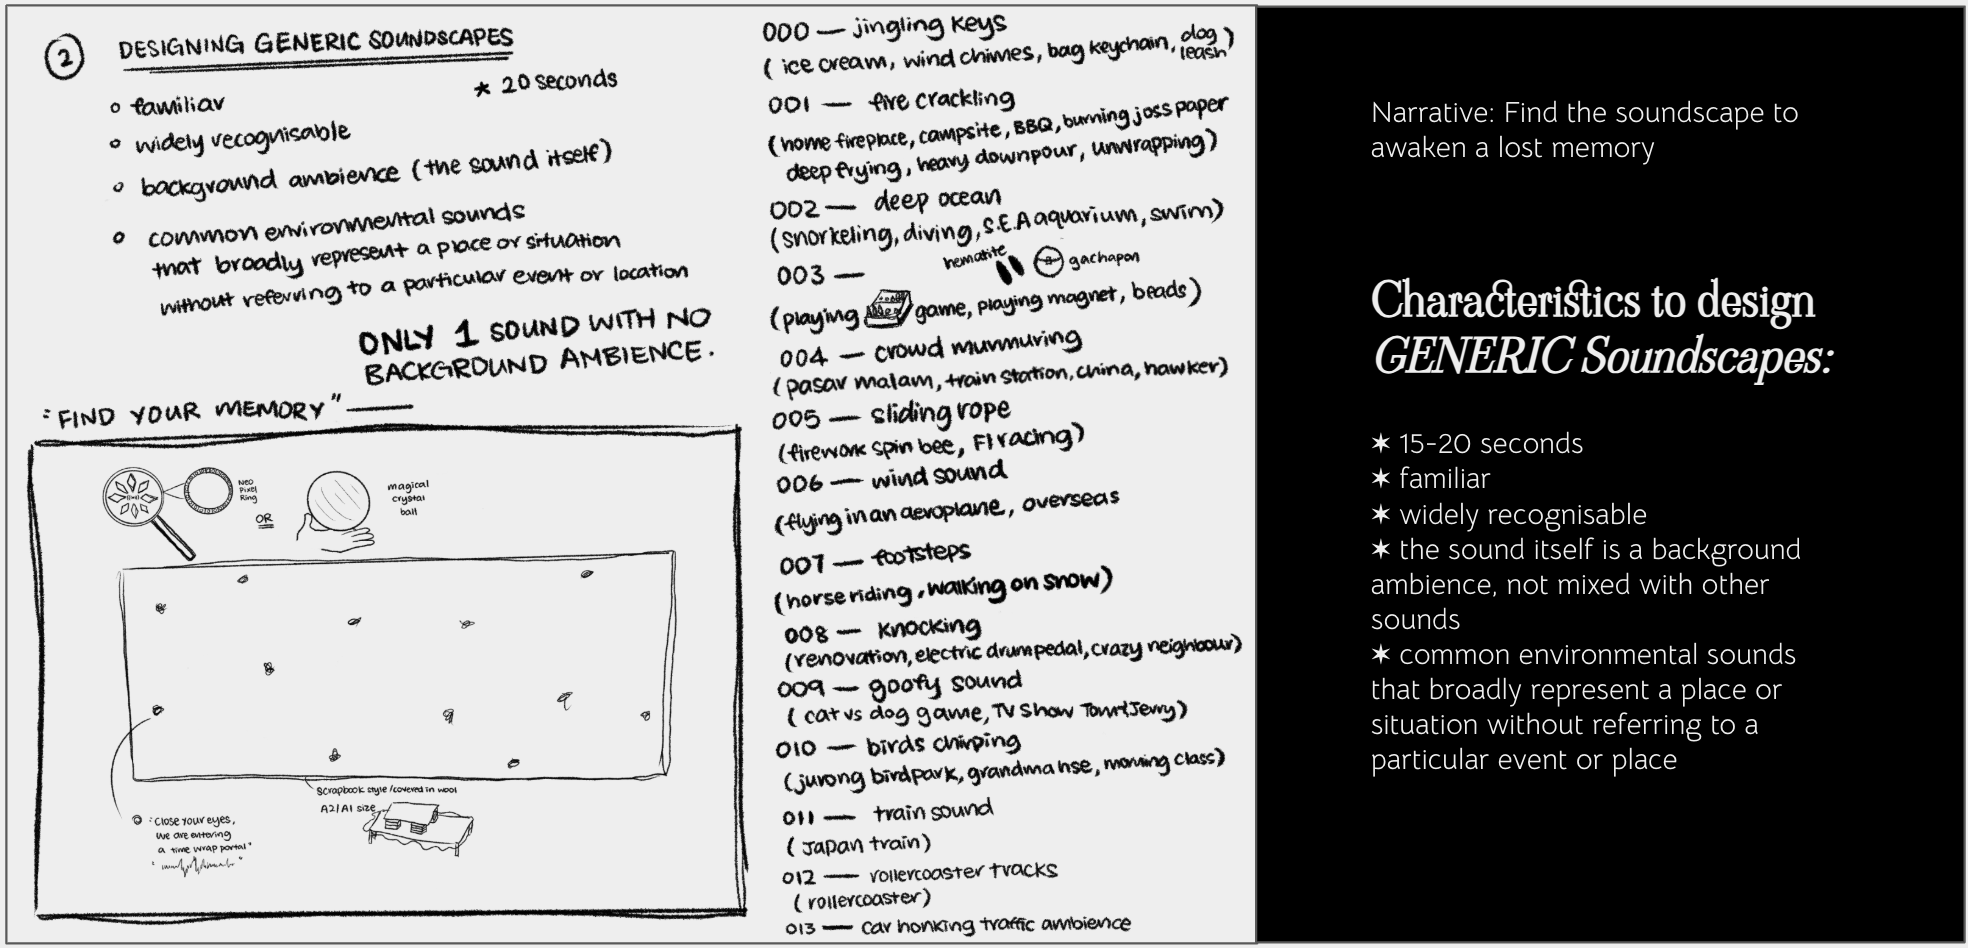 2
DESIGNING GENERIC SOUNDSCAPES
* 20 seconds
familiar
widely recognisable
background ambience (the sound itself)
common environmental sounds
that broadly represent a place or situation
without referring to a particular event or location
ONLY 1 SOUND WITH NO
BACKGROUND AMBIENCE.
"FIND YOUR MEMORY" —
Neo
Pixel
Ring
OR
magical
crystal
ball
Scrapbook style / covered in wool
A2/A1 size
"Close your eyes,
we are entering
a time wrap portal"
000 — jingling keys
(ice cream, wind chimes, bag keychain, dog leash)
001 — fire crackling
(home fireplace, campsite, BBQ, burning joss paper
deep frying, heavy downpour, unwrapping)
002 — deep ocean
(snorkeling, diving, S.E.A aquarium, swim)
003 —
hematite
gachapon
(playing game, playing magnet, beads)
004 — crowd murmuring
(pasar malam, train station, china, hawker)
005 — sliding rope
(firework spin bee, F1 racing)
006 — wind sound
(flying in an aeroplane, overseas
007 — footsteps
(horse riding, walking on snow)
008 — knocking
(renovation, electric drum pedal, crazy neighbour)
009 — goofy sound
(cat vs dog game, TV Show Tom&Jerry)
010 — birds chirping
(jurong bird park, grandma hse, morning class)
011 — train sound
(Japan train)
012 — rollercoaster tracks
(rollercoaster)
013 — car honking traffic ambience
Narrative: Find the soundscape to
awaken a lost memory
Characteristics to design
GENERIC Soundscapes:
✶ 15-20 seconds
✶ familiar
✶ widely recognisable
✶ the sound itself is a background
ambience, not mixed with other
sounds
✶ common environmental sounds
that broadly represent a place or
situation without referring to a
particular event or place